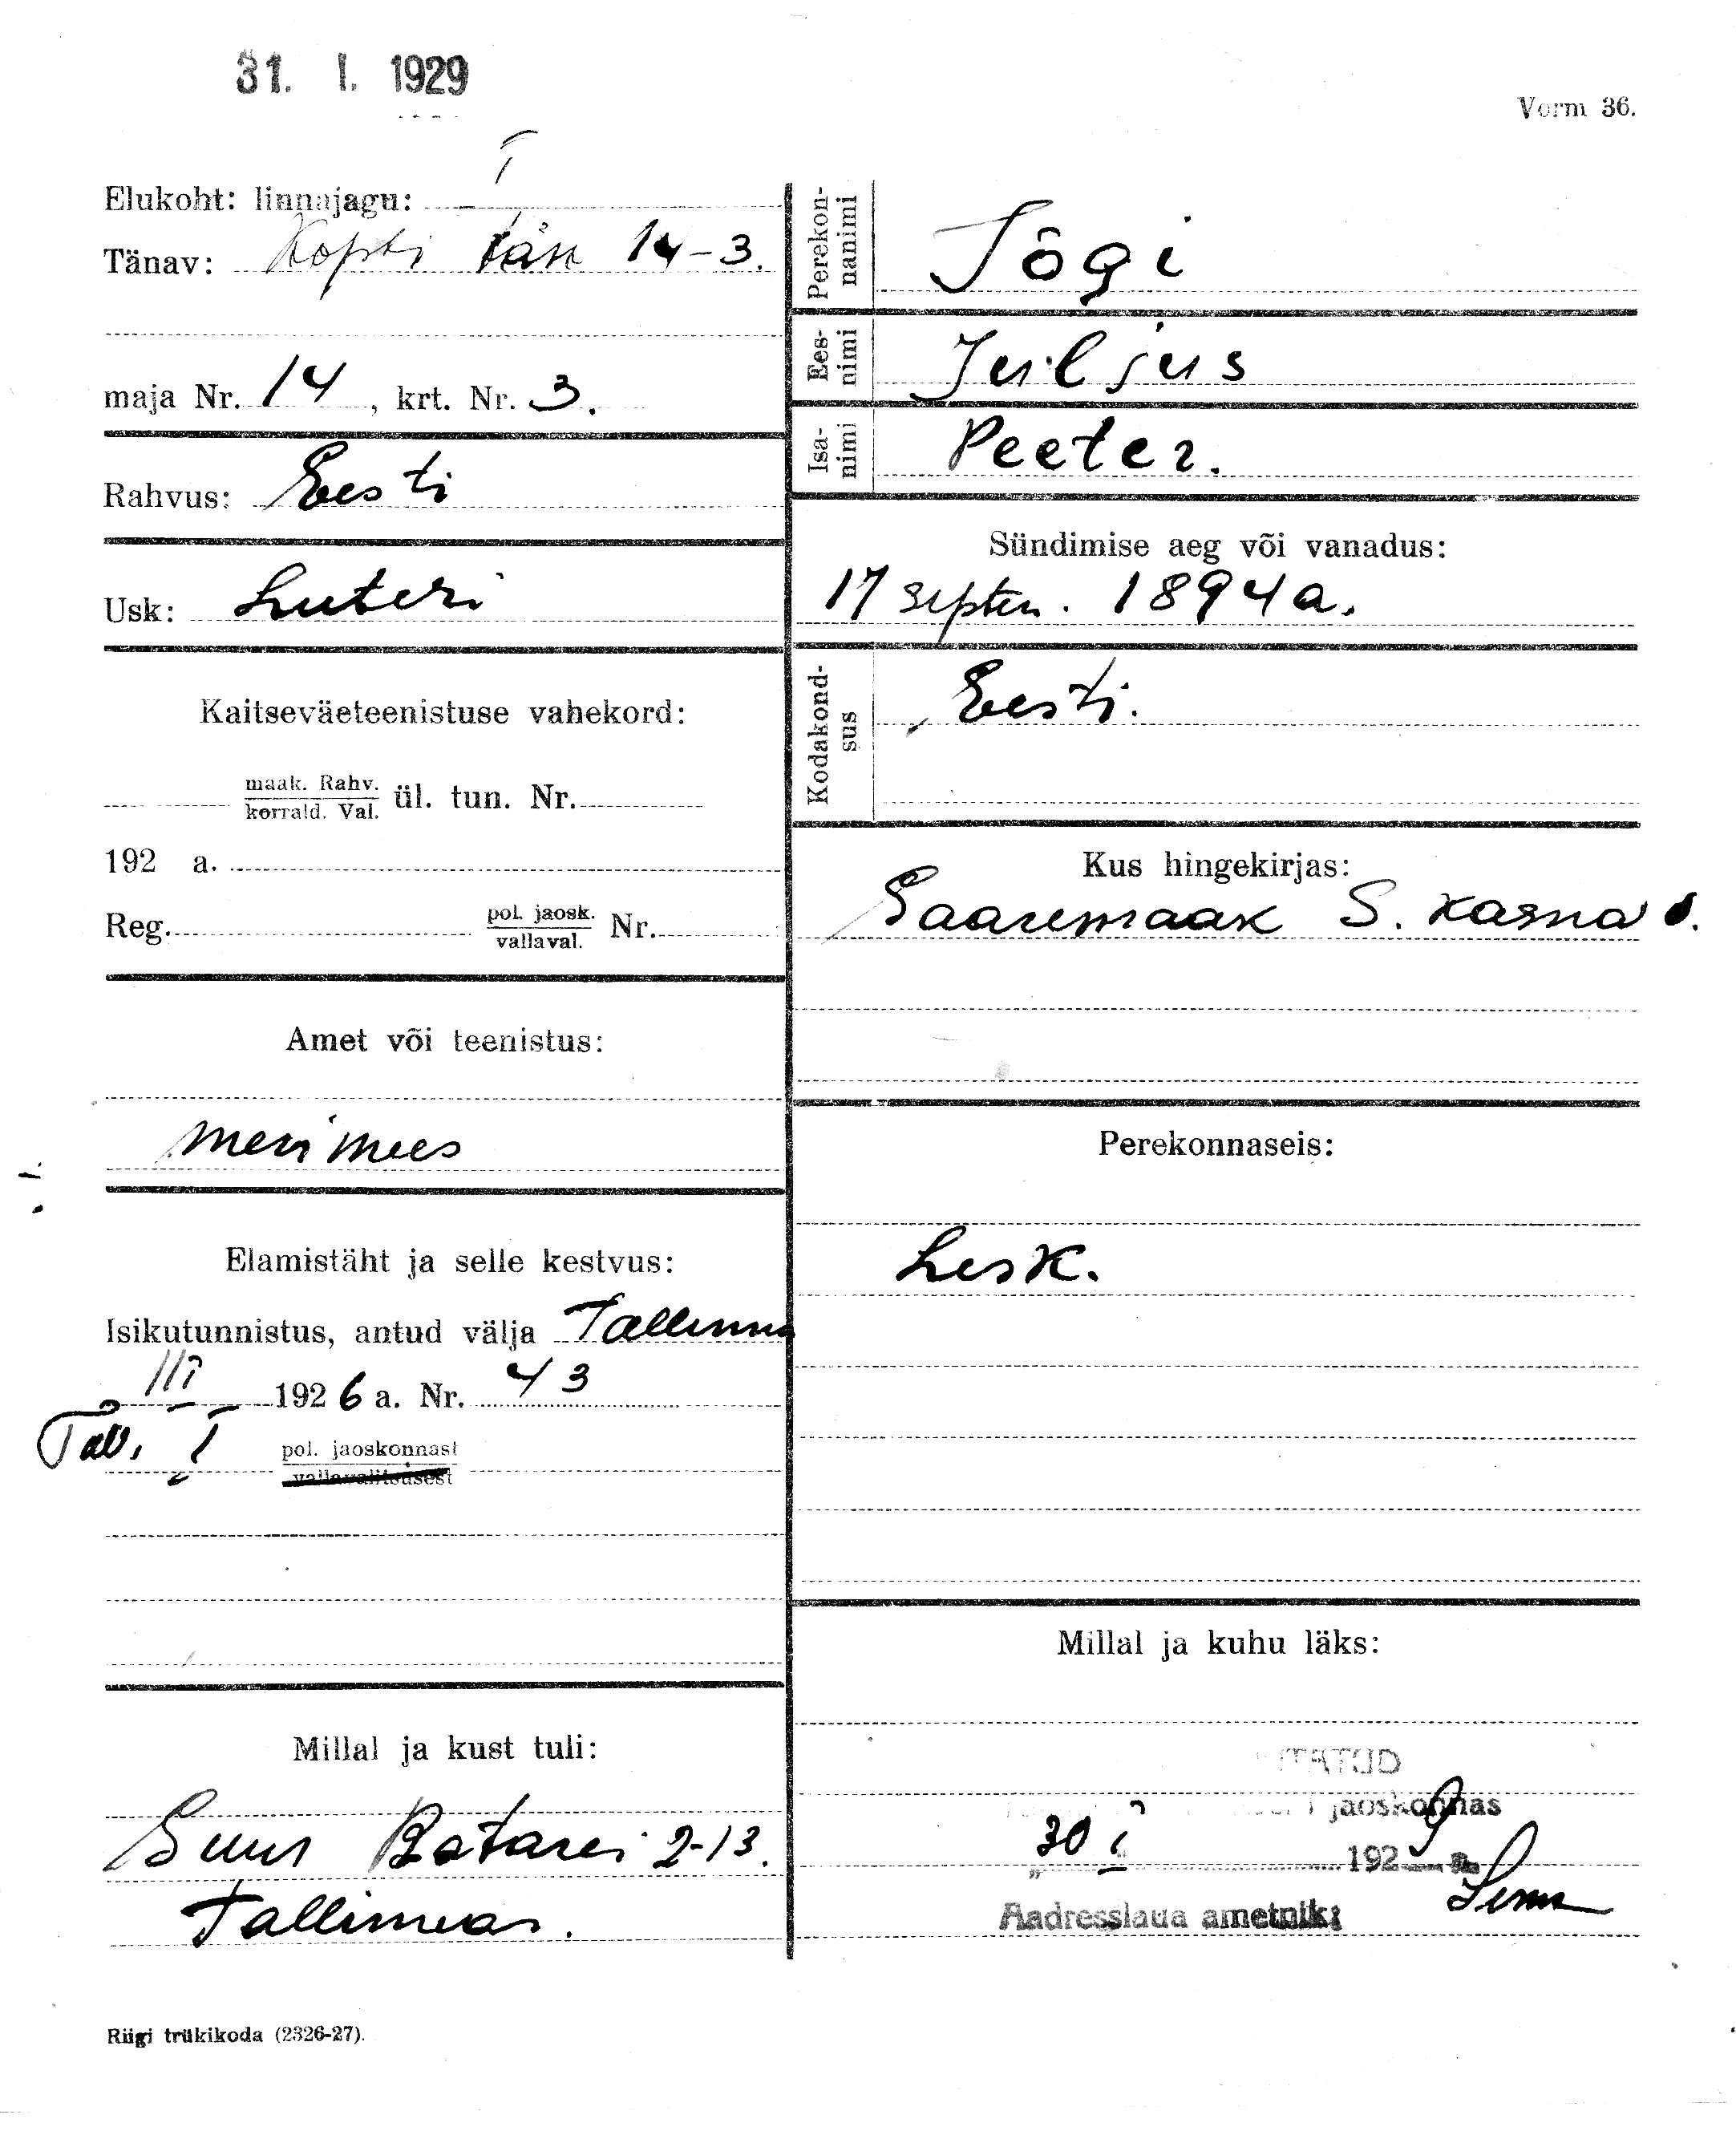 31. I. 1929
Vorm 36.
Elukoht: linnajagu: I
Tänav: Kopli tän 14-3.
maja Nr. 14, krt. Nr. 3.
Rahvus: Eesti
Usk: Luteri
Kaitseväeteenistuse vahekord:
maak. Rahv.
korrald. Val. ül. tun. Nr.
192 a.
Reg. pol. jaosk.
vallaval. Nr.
Amet või teenistus:
merimees
Elamistäht ja selle kestvus:
Isikutunnistus, antud välja Tallinna
III 1926 a. Nr. 43
Tall. I pol. jaoskonnast
vallavalitsusest
Millal ja kust tuli:
Suur Batarei 2-13.
Tallinnas.
Perekon-
nanimi
Jõgi
Ees-
nimi
Juljus
Isa-
nimi
Peeter.
Sündimise aeg või vanadus:
17 septem. 1894 a.
Kodakond-
sus
Eesti.
Kus hingekirjas:
Saaremaak S.
Perekonnaseis:
Lesk.
Millal ja kuhu läks:
jaoskonnas
30 I 1929 a.
Aadresslaua ametnik:
Riigi trükikoda (2326-27).